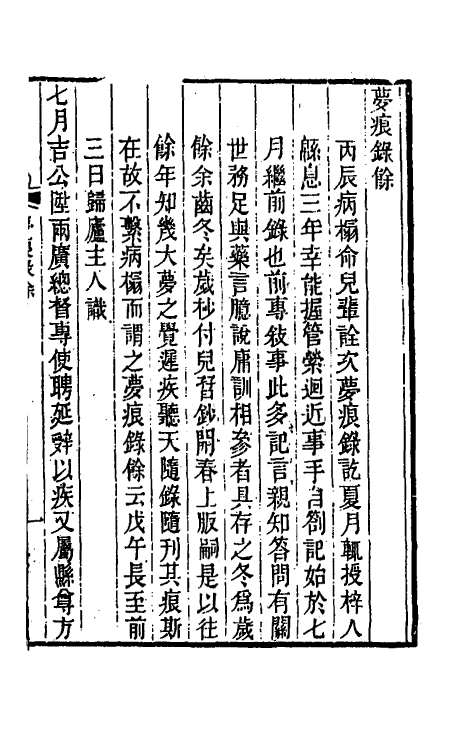 夢痕錄餘
丙辰病榻命兒輩詮次夢痕錄訖夏月輒授梓人
緜息三年幸能握管縈迴近事手自劄記始於七
月繼前錄也前專敍事此多記言親知答問有關
世務足與藥言臆說庸訓相參者具存之冬爲歲
餘余齒冬矣歲杪付兒曺鈔開春上版嗣是以往
餘年知幾大夢之覺遲疾聽天隨錄隨刊其痕斯
在故不繫病榻而謂之夢痕錄餘云戊午長至前
三日歸廬主人識
七月吉公陞兩廣總督專使聘延辤以疾又屬縣尊方